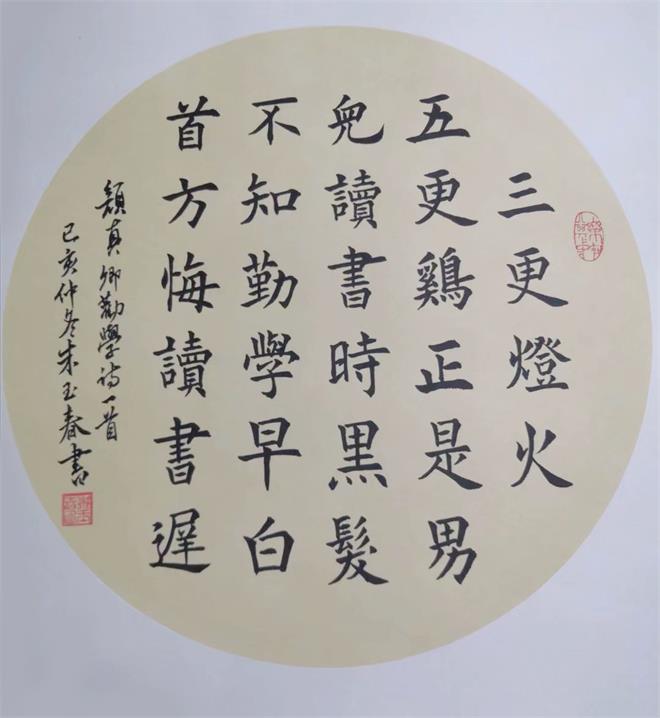 三更燈火
五更鷄正是男
兒讀書時黒髮
不知勤學早白
首方悔讀書遲
顏真卿勸學詩一首
己亥仲冬朱玉春書